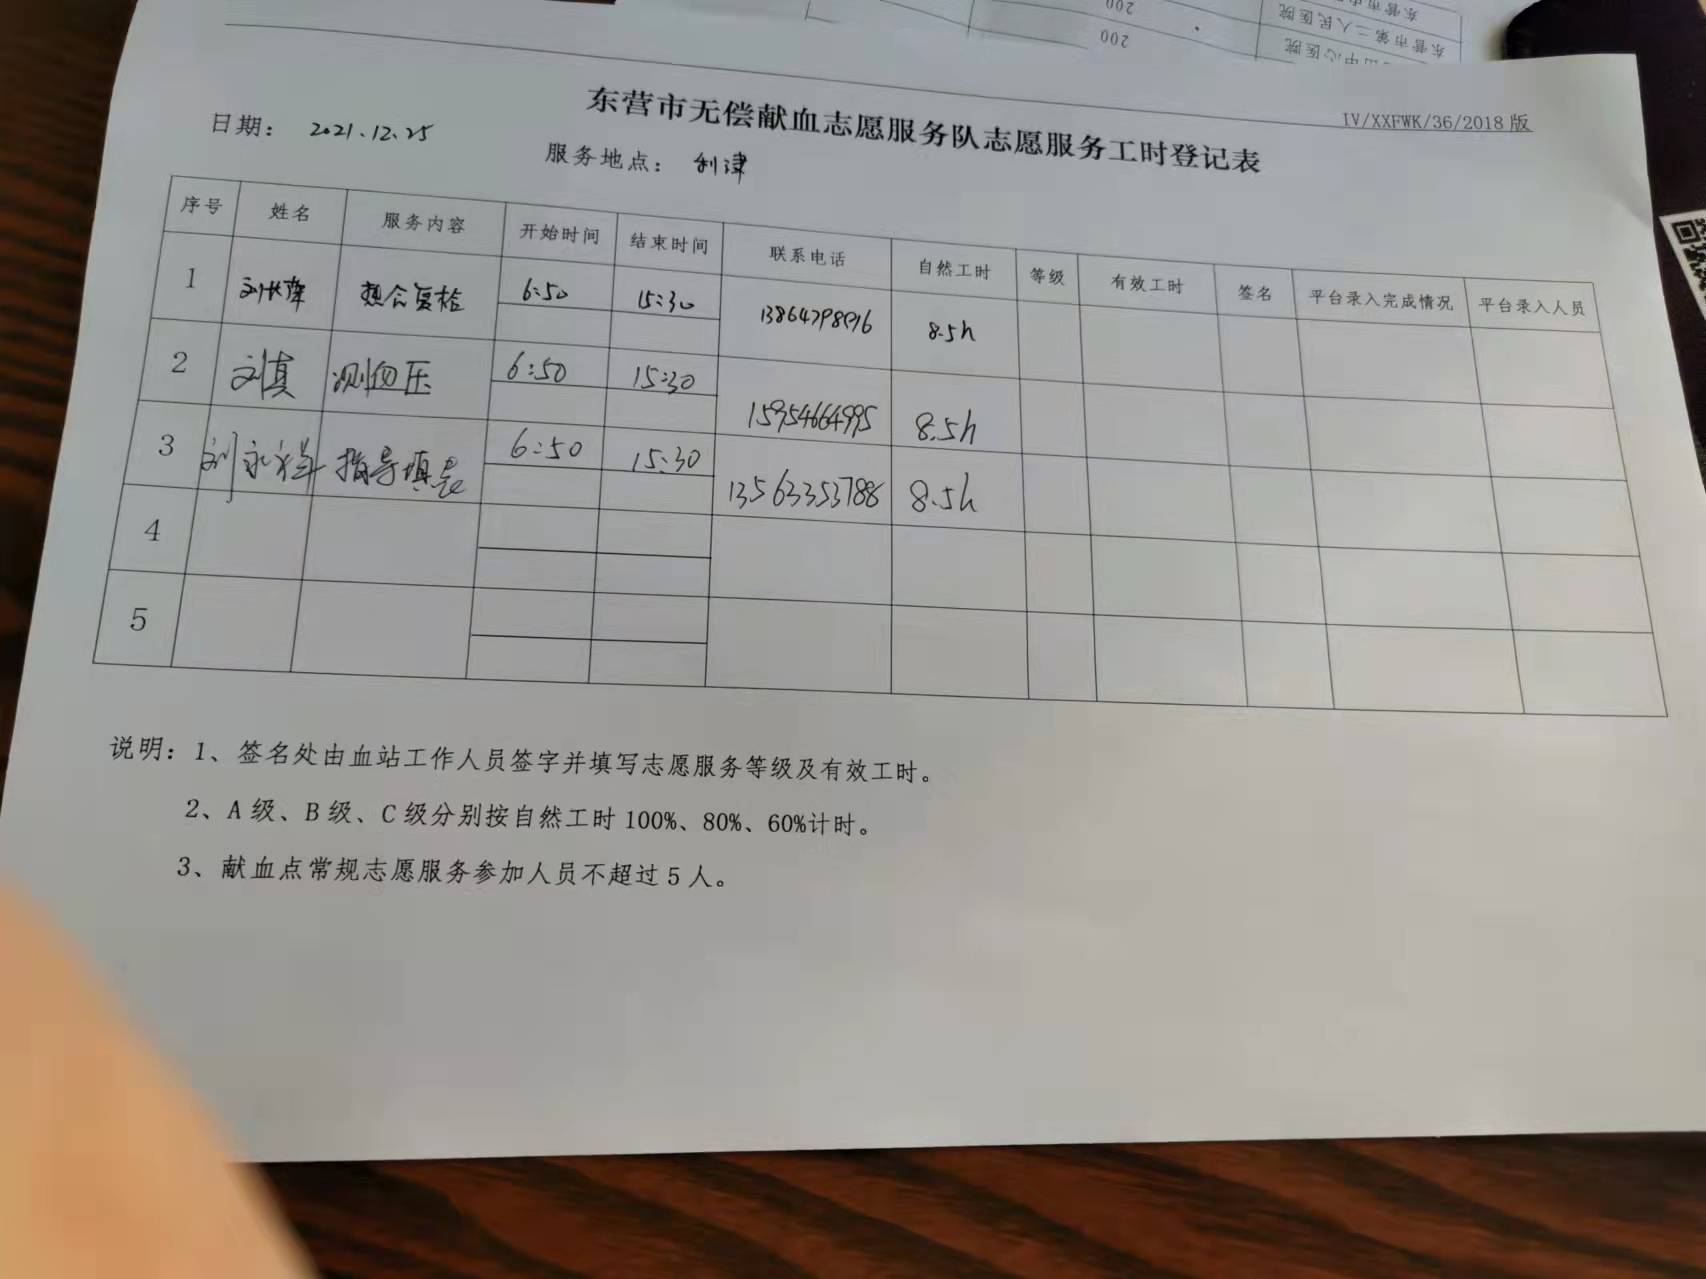 200
东营市第二人民医院
200
IV/XXFWK/36/2018版
东营市无偿献血志愿服务队志愿服务工时登记表
日期： 2021.12.25
服务地点： 利津
序号 姓名 服务内容 开始时间 结束时间 联系电话 自然工时 等级 有效工时 签名 平台录入完成情况 平台录入人员
1 复检 6:50 15:30 8.5h
2 刘真 测血压 6:50 15:30 15954664995 8.5h
3 刘永祥 指导填表 6:50 15:30 13563353788 8.5h
4
5
说明：1、签名处由血站工作人员签字并填写志愿服务等级及有效工时。
2、A级、B级、C级分别按自然工时100%、80%、60%计时。
3、献血点常规志愿服务参加人员不超过5人。